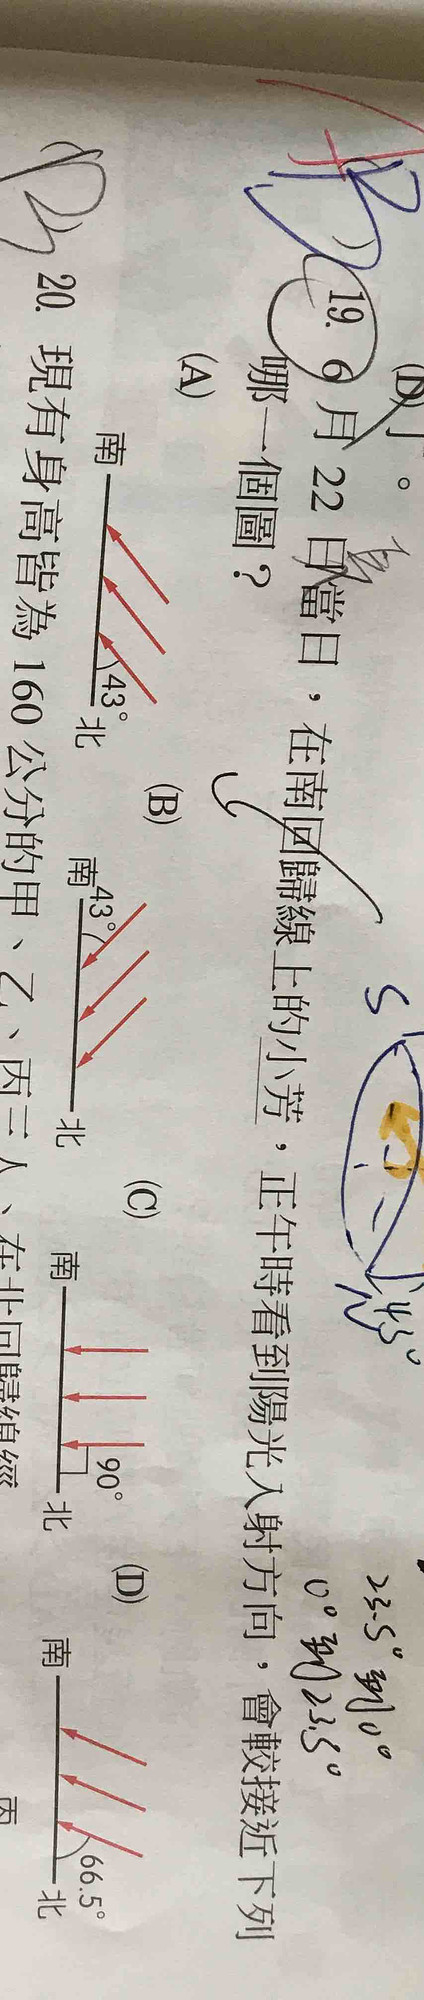 (D)
19. 6 月 22 日當日，在南回歸線上的小芳，正午時看到陽光入射方向，會較接近下列
哪一個圖？
(A)
南
43°
北
(B)
南
43°
北
(C)
南
90°
北
(D)
南
66.5°
北
20. 現有身高皆為 160 公分的甲、乙、丙三人、在北回歸線經
丙
B
S
N
43°
23.5° 到 0°
0° 到 23.5°